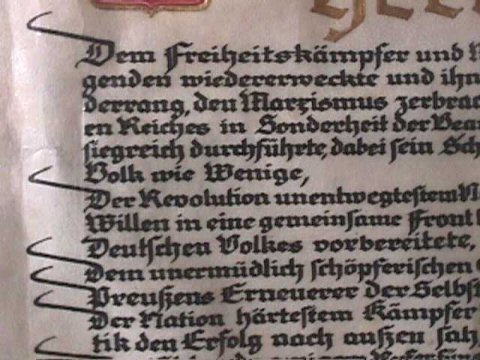 Dem Freiheitskämpfer und
genden wiedererweckte und ihn
derrang, den Marxismus zerbrac
en Reiches in Sonderheit der Bea
siegreich durchführte, dabei sein Sch
Volk wie Wenige,
Der Revolution unentwegtestem
Willen in eine gemeinsame Front
Deutschen Volkes vorbereitete,
Dem unermüdlich schöpferischen
Preußens Erneuerer der Selbst
Der Nation härtestem Kämpfer
tik den Erfolg nach außen sah